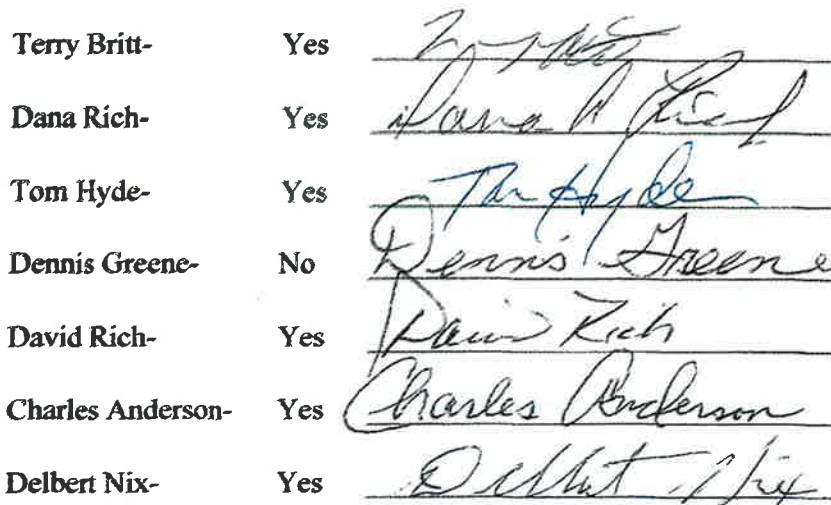 Terry Britt- Yes
Dana Rich- Yes Dana A Rich
Tom Hyde- Yes Tom Hyde
Dennis Greene- No Dennis Greene
David Rich- Yes David Rich
Charles Anderson- Yes Charles Anderson
Delbert Nix- Yes Delbert Nix